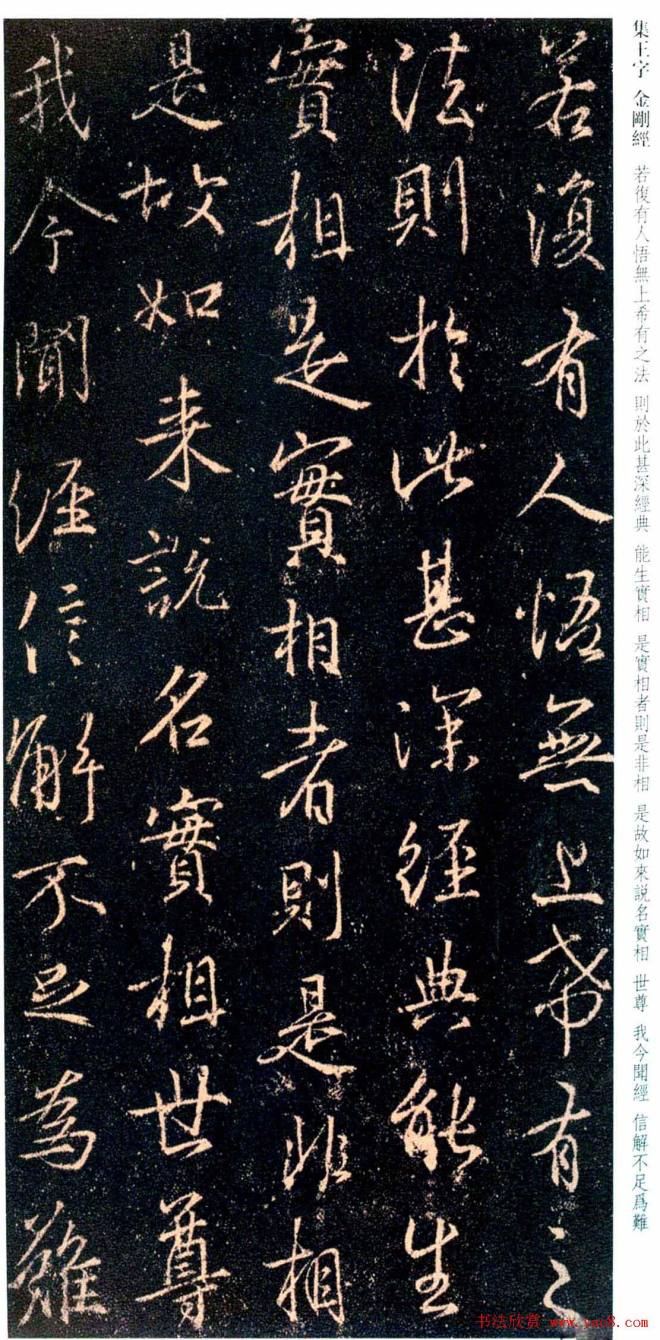 集王字 金剛經 若復有人悟無上希有之法 則於此甚深經典 能生實相 是實相者則是非相 是故如來説名實相 世尊 我今聞經 信解不足爲難
若復有人悟無上希有之
法則於此甚深經典能生
實相是實相者則是非相
是故如来說名實相世尊
我今聞經信解不足為難
书法欣赏 www.yac8.com